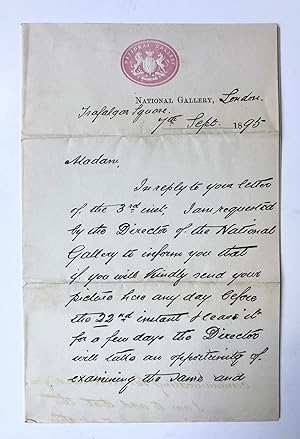 NATIONAL GALLERY
NATIONAL GALLERY, London.
Trafalgar Square
7th Sept. 1895
Madam,
In reply to your letter
of the 3rd inst, I am requested
by the Director of the National
Gallery to inform you that
if you will kindly send your
picture here any day before
the 22nd instant & leave it
for a few days the Director
will take an opportunity of
examining the same and